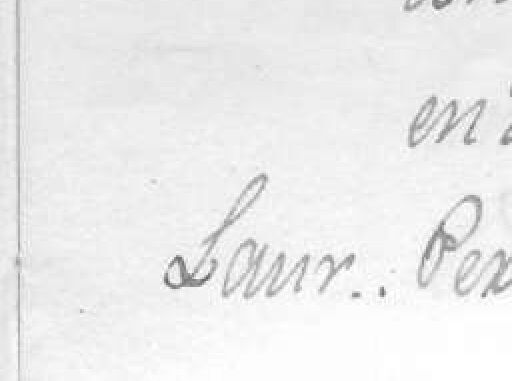 en
Laur. Per